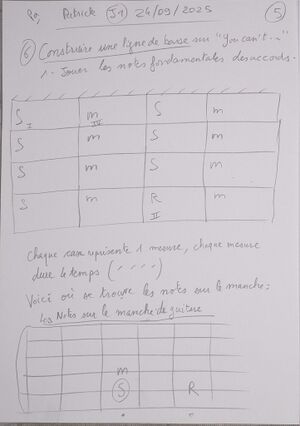 Po, Patrick J1 24/09/2025 5
6 Construire une ligne de basse sur "You can't..."
1. Jouer les notes fondamentales des accords.
S I m IV S m
S m S m
S m S m
S m R II m
Chaque case représente 1 mesure, chaque mesure
dure 4 temps ( / / / / )
Voici où se trouve les notes sur le manche:
Les Notes sur le manche de guitare
m
S R